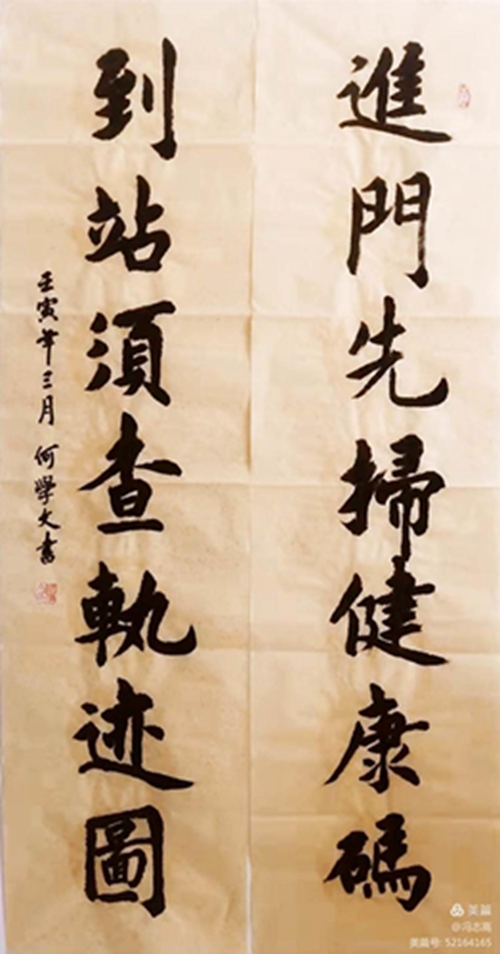 進門先掃健康碼
到站須查軌迹圖
壬寅年三月 何學文書
美篇
@冯志高
美篇号: 52164165